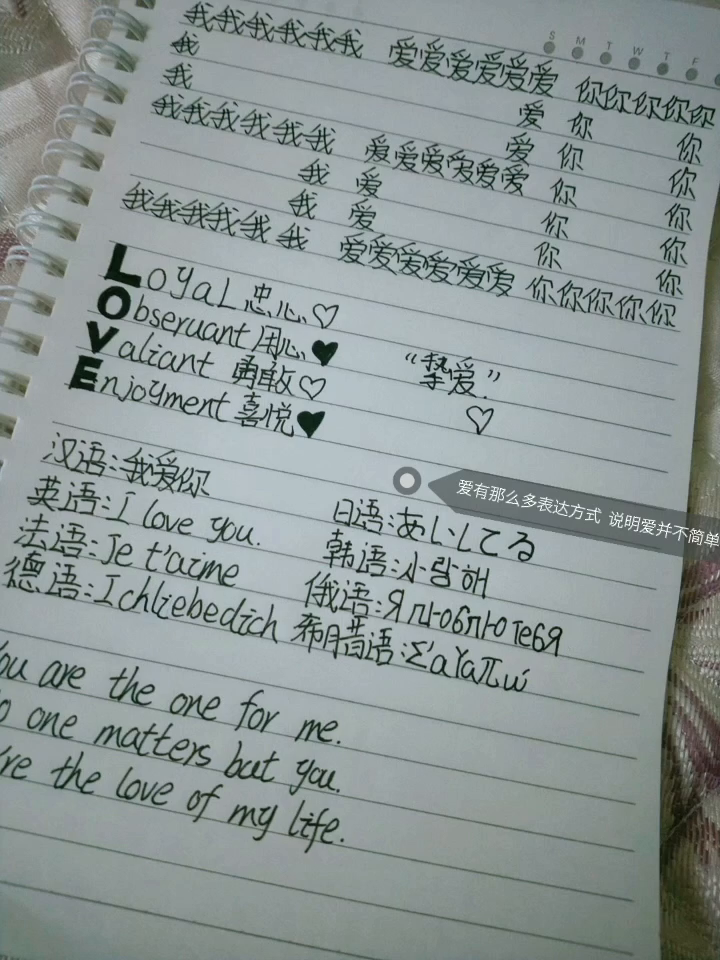 S M T W T F
我我我我我我 爱爱爱爱爱爱 你你你你你
我 爱 你 你
我 爱 你 你
我我我我我我 爱爱爱爱爱爱 你 你
我 爱 你 你
我 爱 你 你
我我我我我我 爱爱爱爱爱爱 你你你你你
Loyal 忠心 ♡
Obseruant 用心 ♥
Valiant 勇敢 ♡ “挚爱”.
Enjoyment 喜悦 ♥ ♡
爱有那么多表达方式 说明爱并不简单
汉语:我爱你
英语:I love you. 日语:あいしてる
法语:Je t'aime 韩语:사랑해
德语:Ichliebedich 俄语:Я люблю тебя
希腊语:Σ'αγαπώ
You are the one for me.
one matters but you.
the love of my life.